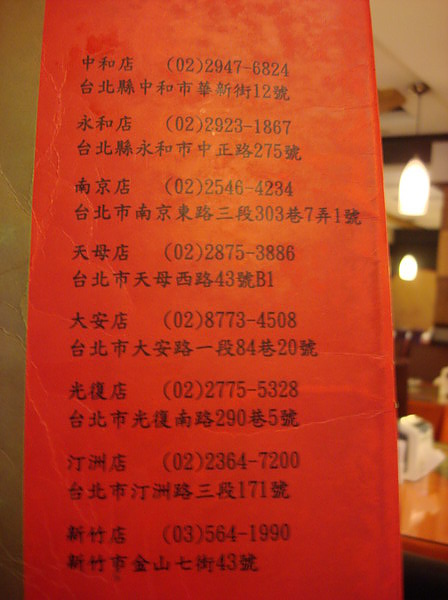 中和店 (02)2947-6824
台北縣中和市華新街12號
永和店 (02)2923-1867
台北縣永和市中正路275號
南京店 (02)2546-4234
台北市南京東路三段303巷7弄1號
天母店 (02)2875-3886
台北市天母西路43號B1
大安店 (02)8773-4508
台北市大安路一段84巷20號
光復店 (02)2775-5328
台北市光復南路290巷5號
汀洲店 (02)2364-7200
台北市汀洲路三段171號
新竹店 (03)564-1990
新竹市金山七街43號